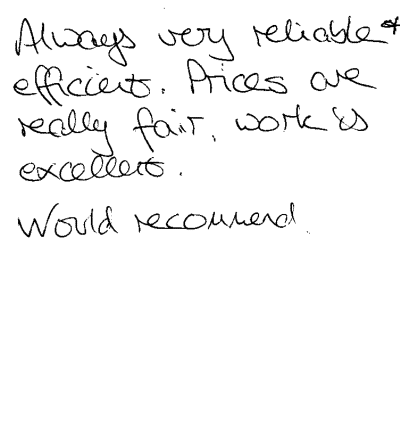 Always very reliable &
efficient. Prices are
really fair, work is
excellent.
Would recommend.